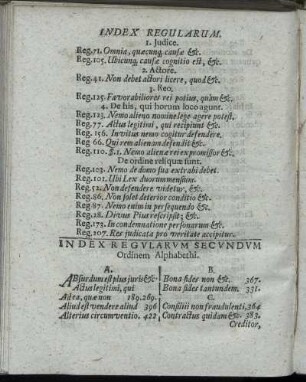 INDEX REGULARUM.
1. Judice.
Reg. 71. Omnia, quæcunq; causæ &c.
Reg. 105. Ubicunq; causæ cognitio est, &c.
2. Actore.
Reg. 41. Non debet actori licere, quod &c.
3. Reo.
Reg. 125. Favorabiliores rei potius, quàm &c.
4. De his, qui horum loco agunt.
Reg. 123. Nemo alieno nomine lege agere potest.
Reg. 77. Actus legitimi, qui recipiunt &c.
Reg. 156. Invitus nemo cogitur defendere.
Reg. 66. Qui rem alienam defendit &c.
Reg. 110. §. 1. Nemo alienæ rei expromissor &c.
De ordine reliquæ sunt.
Reg. 103. Nemo de domo sua extrahi debet.
Reg. 101. Ubi Lex duorum mensium.
Reg. 52. Non defendere videtur, &c.
Reg. 86. Non solet deterior conditio &c.
Reg. 87. Nemo enim in persequendo &c.
Reg. 28. Divus Pius rescripsit; &c.
Reg. 173. In condemnatione personarum &c.
Reg. 207. Res judicata pro veritate accipitur.
INDEX REGULARUM SECUNDUM
Ordinem Alphabethi.
A.
ABsurdum est plus juris &c.
Actus legitimi, qui
Ad ea, quæ non 189. 269.
Aliud est vendere aliud 396
Alterius circumventio. 422
B.
Bona fides non &c. 367.
Bona fides tantundem. 331.
C.
Consilii non fraudulenti, 364
Contractus quidam &c. 383.
Creditor,